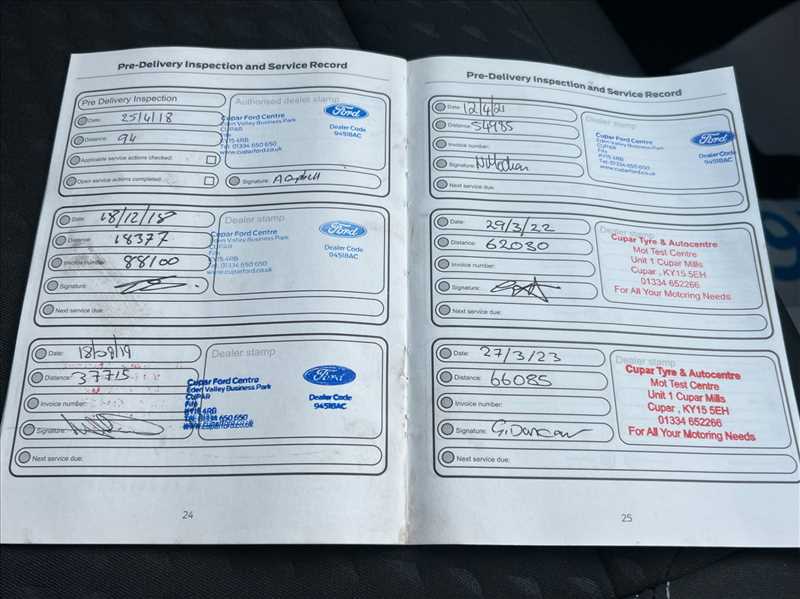 Pre-Delivery Inspection and Service Record
Pre Delivery Inspection
Date: 25/4/18
Distance: 94
Applicable service actions checked:
Open service actions completed:
Authorised dealer stamp
Cupar Ford Centre
Eden Valley Business Park
CUPAR
Fife
KY15 4RB
Tel: 01334 650 650
www.cuparford.co.uk
Ford
Dealer Code
94518AC
Signature:
Date: 18/12/18
Distance: 18377
Invoice number: 88100
Signature:
Next service due:
Dealer stamp
Cupar Ford Centre
Eden Valley Business Park
CUPAR
Fife
KY15 4RB
Tel: 01334 650 650
www.cuparford.co.uk
Ford
Dealer Code
94518AC
Date:
Distance: 37715
Invoice number:
Signature:
Next service due:
Dealer stamp
Cupar Ford Centre
Eden Valley Business Park
CUPAR
Fife
KY15 4RB
Tel: 01334 650 650
www.cuparford.co.uk
Ford
Dealer Code
94518AC
24
Pre-Delivery Inspection and Service Record
Date: 12/4/21
Distance: 54985
Invoice number:
Signature:
Next service due:
Cupar Ford Centre
Eden Valley Business Park
CUPAR
Fife
KY15 4RB
Tel: 01334 650 650
www.cuparford.co.uk
Ford
Dealer Code
94518AC
Date: 29/3/22
Distance: 62080
Invoice number:
Signature:
Next service due:
Dealer stamp
Cupar Tyre & Autocentre
Mot Test Centre
Unit 1 Cupar Mills
Cupar , KY15 5EH
01334 652266
For All Your Motoring Needs
Date: 27/3/23
Distance: 66085
Invoice number:
Signature: G. Duncan
Next service due:
Dealer stamp
Cupar Tyre & Autocentre
Mot Test Centre
Unit 1 Cupar Mills
Cupar , KY15 5EH
01334 652266
For All Your Motoring Needs
25